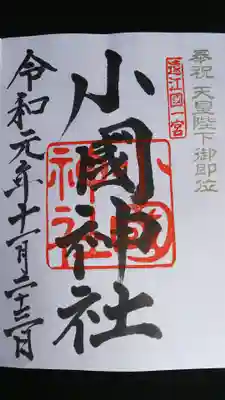 奉祝 天皇陛下御即位
遠江國一宮
小國神社
小國神社
令和元年十一月二十三日